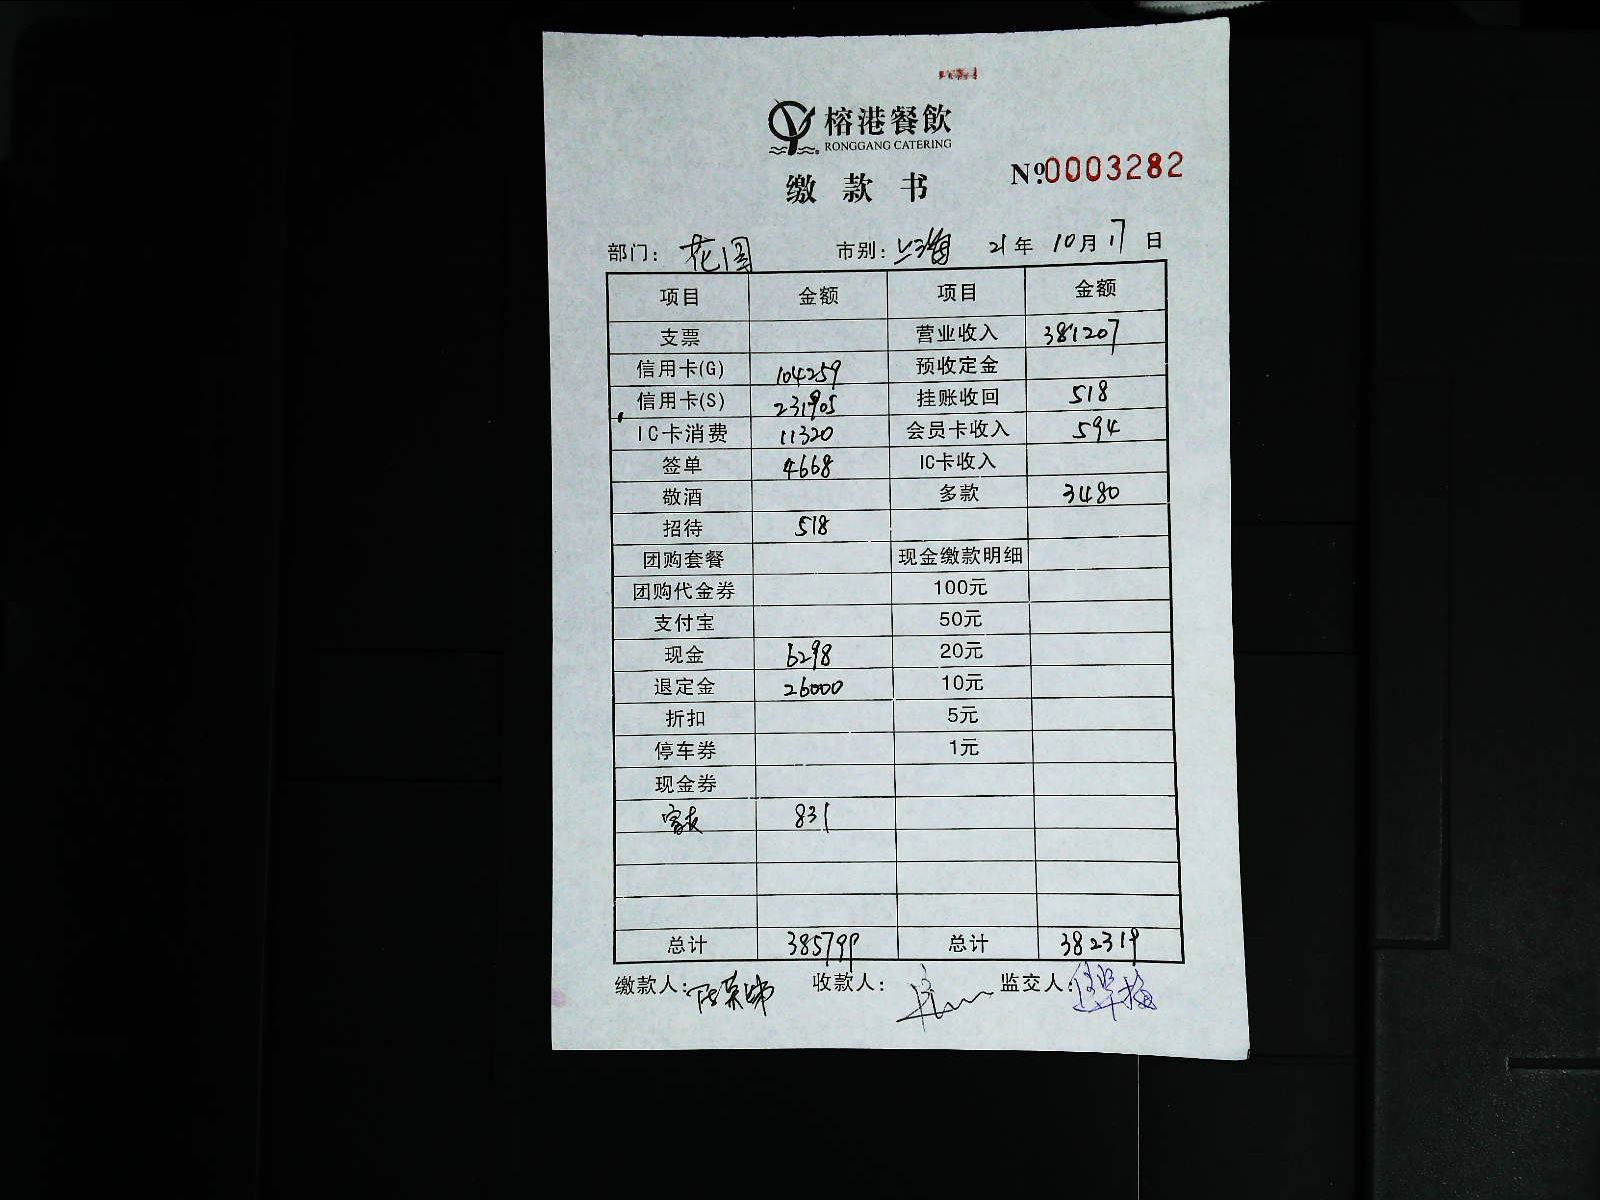 榕港餐飲
RONGGANG CATERING
缴款书
Nº0003282
部门: 花园 市别: 上海 21年 10月 17日
项目 金额 项目 金额
支票 营业收入 381207
信用卡(G) 104259 预收定金
信用卡(S) 231905 挂账收回 518
IC卡消费 11320 会员卡收入 594
签单 4668 IC卡收入
敬酒 多款 3480
招待 518
团购套餐 现金缴款明细
团购代金券 100元
支付宝 50元
现金 6298 20元
退定金 26000 10元
折扣 5元
停车券 1元
现金券
831
总计 385799 总计 382319
缴款人: 收款人: 监交人: